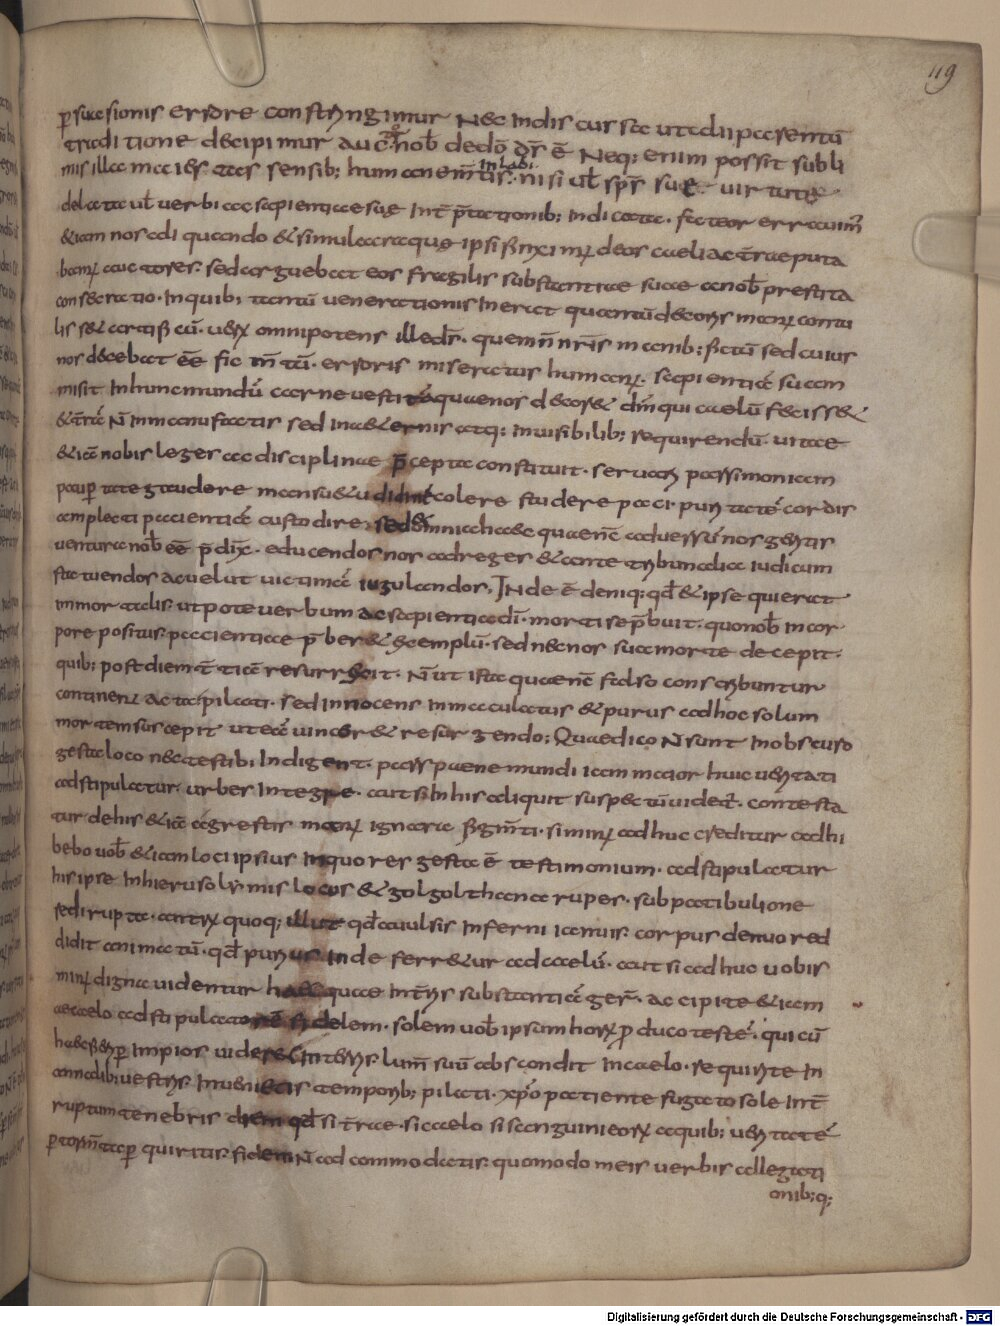 119
p̄suasionis errore constringimur Nec Indiscussa ut adii praesentū
traditione decipimur auctor nob̄ de dō d̄s ē Neq; enim possit subli
mis illa maiestas sensib; humanem̄tis Inlabi nisi ul̄ sp̄s sui uirtute
delata ul̄ uerbi ac sapientiae suae Int̄p̄tationib; Indicata. fateor errauim̄
&iam nos aliquando &simulacra quę ipsi finximꝰ deos caeli ac t̄rae puta
bamꝰ auctores. sed arguebat eos fragilis substantiae suae a nob̄ prestita
consecratio. Inquib; tantū uenerationis Inerat quantū decoris manꝰ contu
lisse& artifi cū. uerꝰ omnipotens ille d̄s. quem n̄ nr̄is manib; fictū sed cuius
nos decebat ēē fic m̄tū. erroris miseratus humanꝰ. sapientiā suam
misit Inhunc mundū carne uestitā quae nos doce& dm̄ qui caelū fecisse&
&t̄rā N̄ Inmanufactis sed Inae&ernis atq; Inuisibilib; requirendū. uitae
&iā nobis leges ac disciplinae p̄cepta constituit. seruari parsimoniam
paup̄tate gaudere mansu&udinē colere studere paci. puritatē cordis
amplecti pacientiā custodire. sed & omnia haec quae nc̄ aduersū nos geritis
uentura nob̄ ēē p̄dix̄. educendos nos ad reges & ante tribunalia iudicum
statuendos ac uelut uictimā iugulandos. Inde ē deniq; qd̄ & ipse qui erat
Inmortalis. utpote uerbum ac sapientia d̄i. morti se p̄buit. quo nob̄ In cor
pore positus. pacientiae p̄ber& exemplū. sed nec nos sua morte decepit.
quib; post diem t̄tiā resurrexit. N̄ ut ista quae nc̄ falso conscribuntur
continenꝰ acta pilati. sed Innocens Inmaculatus & purus ad hoc solum
mortem suscepit ut eā uincer& resurgendo; Quae dico N̄ sunt In obscuro
gesta loco nec testib; Indigent. pars paene mundi iam maior huic ueritati
adstipulatur. urbes Integre. aut si In his aliquit suspectū uidet̄. contesta
tur de his &iā agrestis manꝰ ignara figm̄ti. si minꝰ adhuc creditur adhi
bebo uob̄ &iam loci ipsius In quo res gesta ē testimonium. adstipulatur
his ipse In hierusolymis locus & golgolthana rupes. sub patibuli one
sed i rupta. antrꝰ quoq; illut qd̄ auulsis Inferni ianuis. corpus denuo red
didit animatū. qd̄ purius Inde ferr&ur ad caelū. aut si adhuc uobis
minꝰ digna uidentur haec quae Int̄ris substantiā ger̄. accipite &iam
ae caelo adstipulatorē fidelem. solem uob̄ ipsum horꝰ p̄duco testē. qui cū
haec fieri p̄ Impios uidere& Interris lum̄ suū abscondit In caelo. requirite In
annalib; uestris Inueni&is temporib; pilati. xp̄o patiente fugato sole Int̄
ruptum tenebris diem qd̄ si t̄rae. si caelo si sanguini eorꝰ a quib; ueritatē
p̄ torm̄ta p̄quiritis. fidem N̄ adcommodatis. quomodo meis uerbis allegati
onib;q;
Digitalisierung gefördert durch die Deutsche Forschungsgemeinschaft - DFG